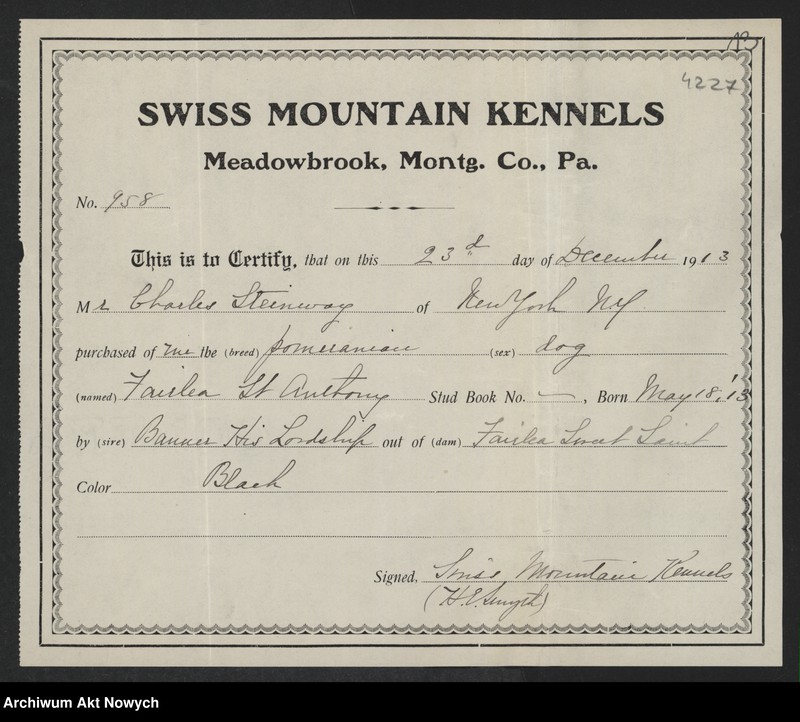 13
4227
SWISS MOUNTAIN KENNELS
Meadowbrook, Montg. Co., Pa.
No. 958
This is to Certify, that on this 23d day of December 1913
Mr Charles Steinway of New York NY
purchased of me the (breed) pomeranian (sex) dog
(named) Fairlea St Anthony Stud Book No. —, Born May 18, '13
by (sire) Banner His Lordship out of (dam) Fairlea Sweet Saint
Color Black
Signed, Swiss Mountain Kennels
(H.E. Smyth)
Archiwum Akt Nowych